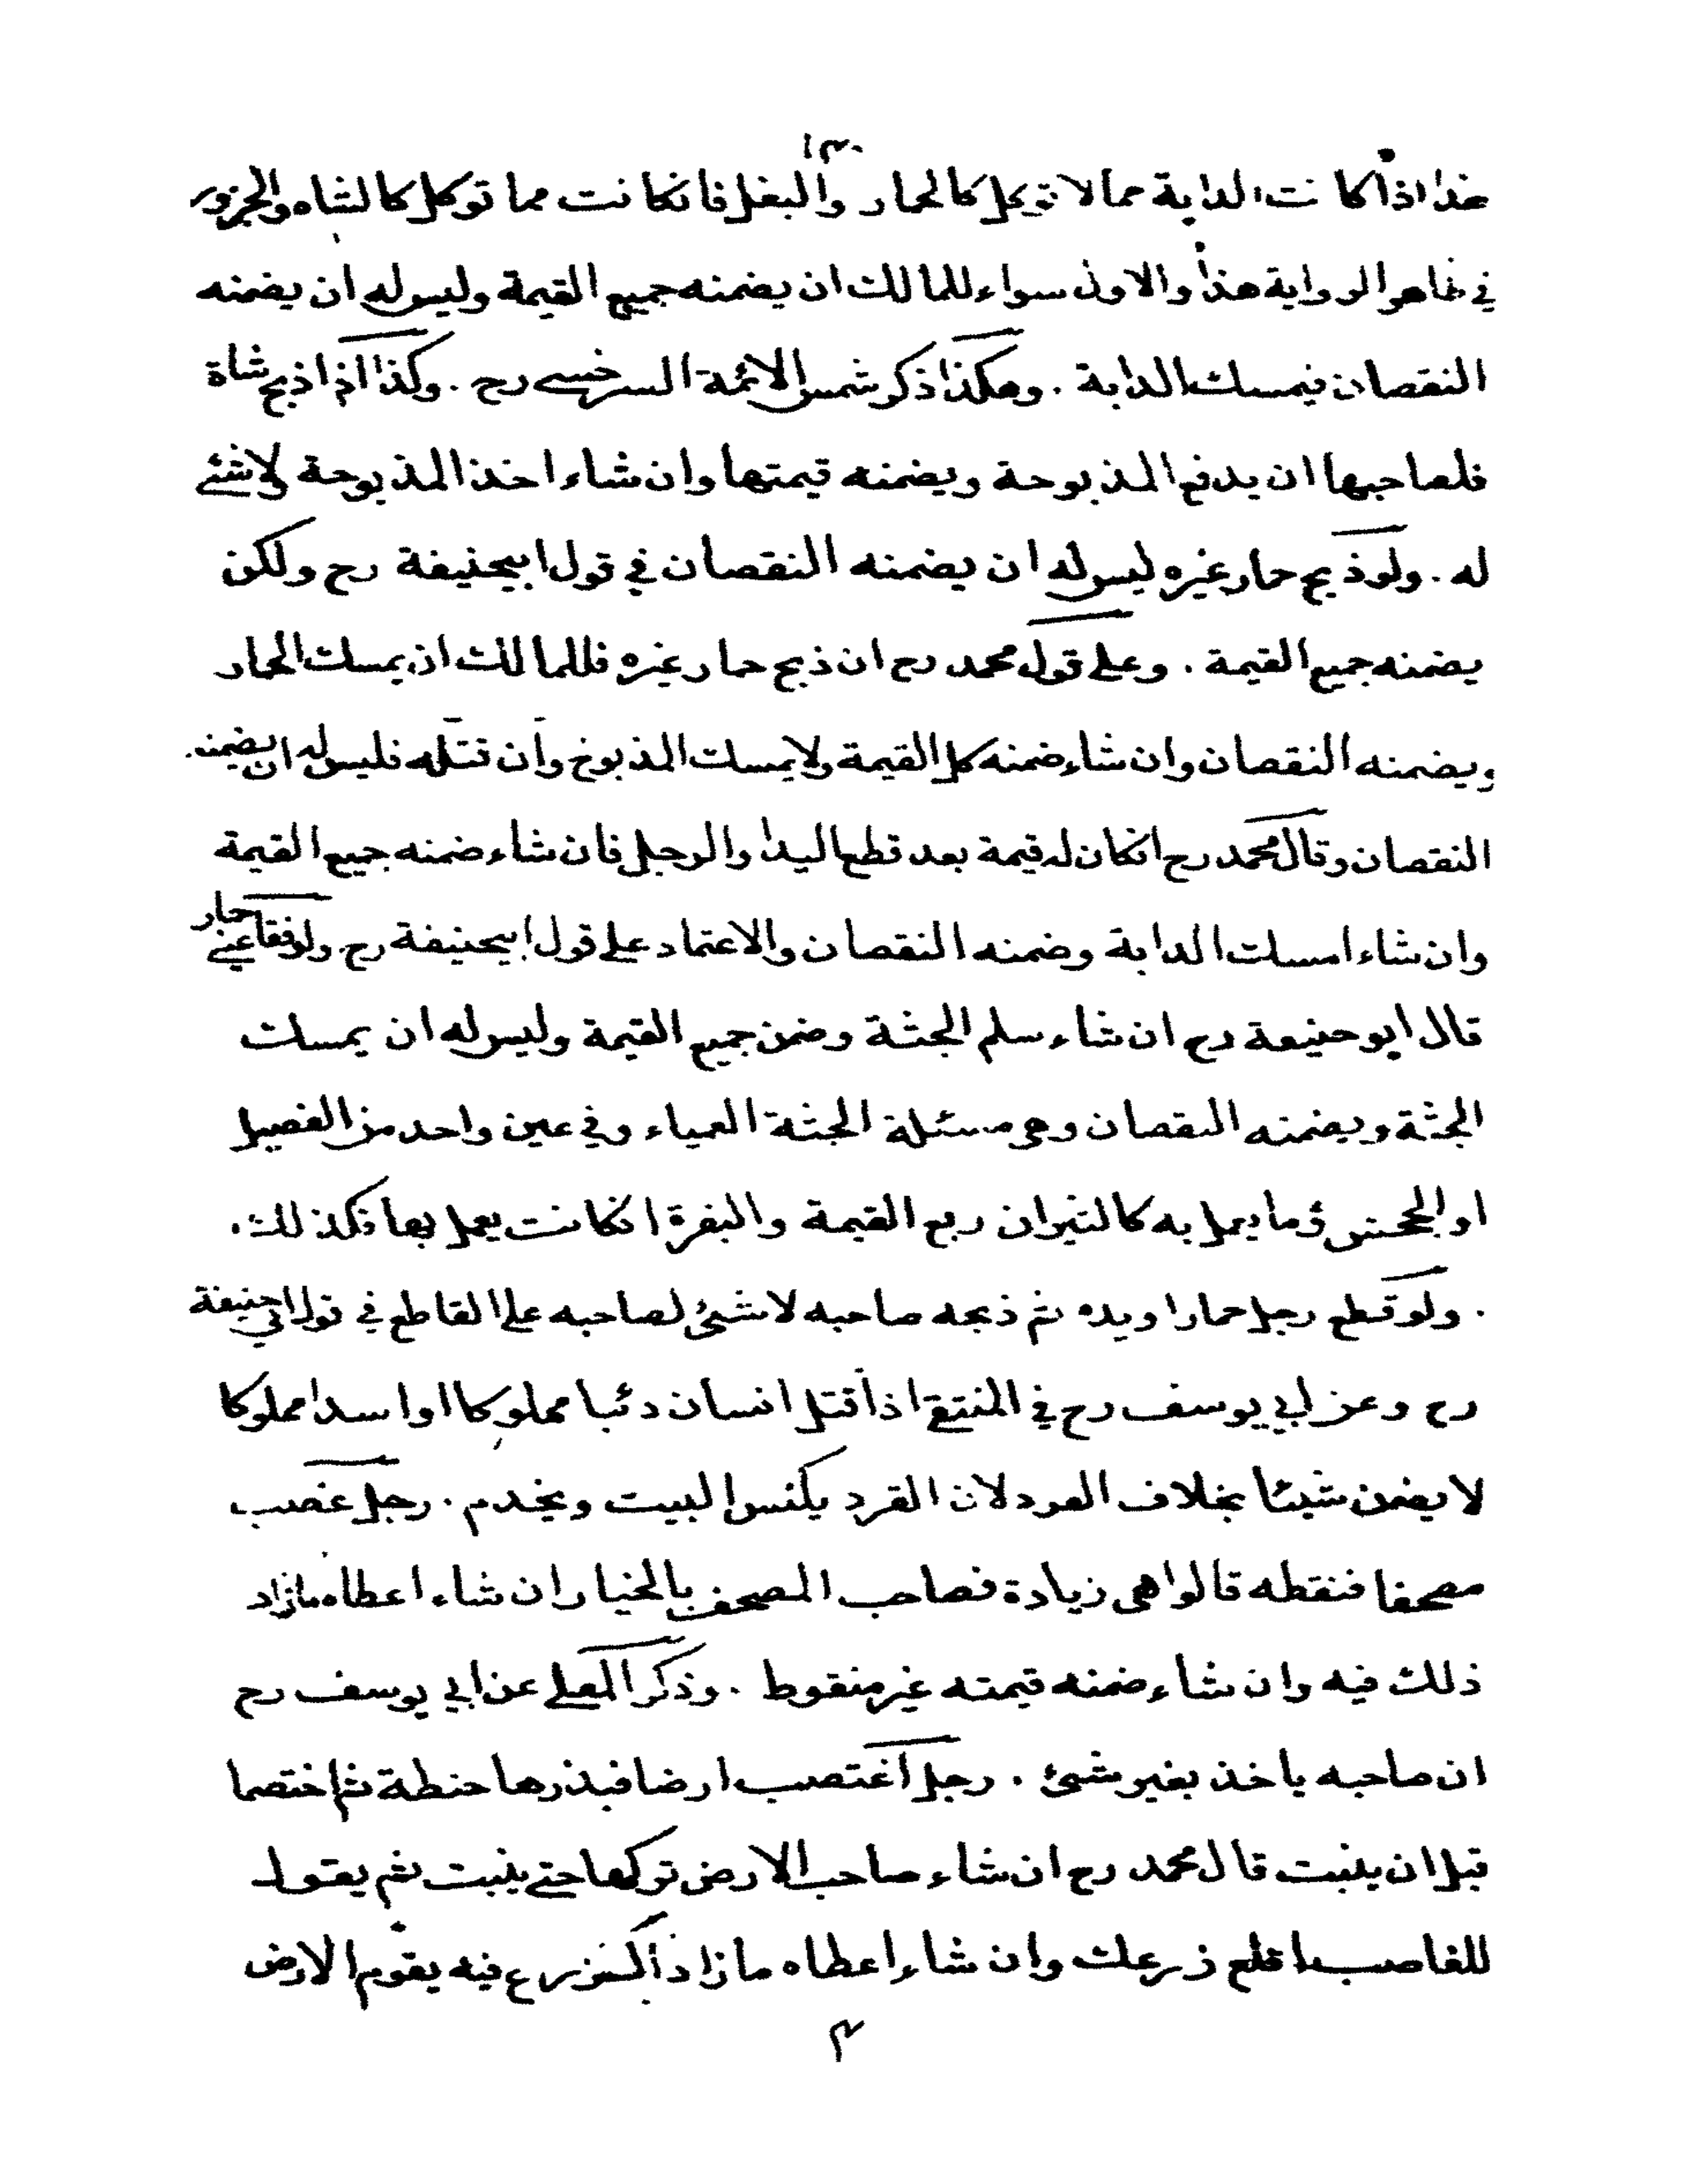 ١٣٠
هذا اذا كانت الدابة مما لا توكل كالحمار والبغل فانكانت مما توكل كالشاه والجزور
في ظاهر الرواية هذا والاول سواء للمالك ان يضمنه جميع القيمة وليس له ان يضمنه
النقصان فيمسك الدابة . وهكذا ذكر شمس الائمة السرخسے رح . وكذا اذا ذبح شاة
فلصاحبها ان يدفع المذبوحة ويضمنه قيمتها وان شاء اخذ المذبوحة لا شئے
له . ولو ذبح حمار غيره ليس له ان يضمنه النقصان في قول ابيحنيفة رح ولكن
يضمنه جميع القيمة . وعلے قول محمد رح ان ذبح حمار غيره فللمالك ان يمسك الحمار
ويضمنه النقصان وان شاء ضمنه كل القيمة ولا يمسك المذبوح وان قتله فليس له ان يضمنه
النقصان وقال محمد رح انكان له قيمة بعد قطع اليد والرجل فان شاء ضمنه جميع القيمة
وان شاء امسك الدابة وضمنه النقصان والاعتماد علے قول ابيحنيفة رح . ولو فقأ عينے حمار
قال ابو حنيفة رح ان شاء سلم الجثة وضمن جميع القيمة وليس له ان يمسك
الجثة ويضمنه النقصان وهي مسئلة الجثة العمياء وفي عين واحد من الفصيل
او الجحش وما يعمل به كالثيران ربع القيمة والبقرة انكانت يعمل بها فكذلك .
. ولو قطع رجل حمار او يده ثم ذبحه صاحبه لا شئ لصاحبه علے القاطع في قول ابي حنيفة
رح وعن ابي يوسف رح في المنتقے اذا قتل انسان ذئبا مملوكا او اسدا مملوكا
لا يضمن شيئا بخلاف القرد لان القرد يكنس البيت ويخدم . رجل غصب
مصحفا فنقطه قالوا هي زيادة فصاحب المصحف بالخيار ان شاء اعطاه ما زاد
ذلك فيه وان شاء ضمنه قيمته غير منقوط . وذكر المعلے عن ابي يوسف رح
ان صاحبه ياخذ بغير شئ . رجل اغتصب ارضا فبذرها حنطة ثم اختصما
قبل ان ينبت قال محمد رح ان شاء صاحب الارض تركها حتے ينبت ثم يقول
للغاصب اقلع زرعك وان شاء اعطاه ما زاد الزرع فيه يقوم الارض